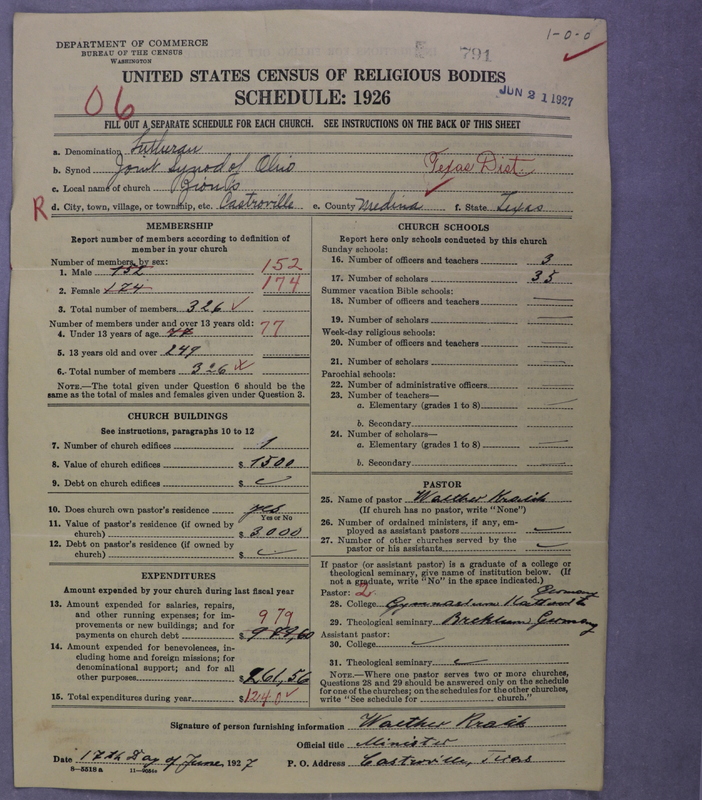 1-0-0
DEPARTMENT OF COMMERCE
BUREAU OF THE CENSUS
WASHINGTON
791
UNITED STATES CENSUS OF RELIGIOUS BODIES
SCHEDULE: 1926
JUN 21 1927
06
FILL OUT A SEPARATE SCHEDULE FOR EACH CHURCH. SEE INSTRUCTIONS ON THE BACK OF THIS SHEET
a. Denomination Lutheran
b. Synod Joint Synod of Ohio Texas Dist.
c. Local name of church Zion's
R d. City, town, village, or township, etc. Castroville e. County Medina f. State Texas
MEMBERSHIP
Report number of members according to definition of
member in your church
Number of members, by sex:
1. Male 152 152
2. Female 174 174
3. Total number of members 326
Number of members under and over 13 years old:
4. Under 13 years of age 77 77
5. 13 years old and over 249
6. Total number of members 326
NOTE.—The total given under Question 6 should be the
same as the total of males and females given under Question 3.
CHURCH BUILDINGS
See instructions, paragraphs 10 to 12
7. Number of church edifices 1
8. Value of church edifices $ 1500
9. Debt on church edifices $
10. Does church own pastor's residence yes
Yes or No
11. Value of pastor's residence (if owned by
church) $ 3000
12. Debt on pastor's residence (if owned by
church) $
EXPENDITURES
Amount expended by your church during last fiscal year
13. Amount expended for salaries, repairs,
and other running expenses; for im-
provements or new buildings; and for
payments on church debt $ 979
14. Amount expended for benevolences, in-
cluding home and foreign missions; for
denominational support; and for all
other purposes $ 261,56
15. Total expenditures during year $ 1240
CHURCH SCHOOLS
Report here only schools conducted by this church
Sunday schools:
16. Number of officers and teachers 3
17. Number of scholars 35
Summer vacation Bible schools:
18. Number of officers and teachers
19. Number of scholars
Week-day religious schools:
20. Number of officers and teachers
21. Number of scholars
Parochial schools:
22. Number of administrative officers
23. Number of teachers—
a. Elementary (grades 1 to 8)
b. Secondary
24. Number of scholars—
a. Elementary (grades 1 to 8)
b. Secondary
PASTOR
25. Name of pastor Walther
(If church has no pastor, write "None")
26. Number of ordained ministers, if any, em-
ployed as assistant pastors
27. Number of other churches served by the
pastor or his assistants
If pastor (or assistant pastor) is a graduate of a college or
theological seminary, give name of institution below. (If
not a graduate, write "No" in the space indicated.)
Pastor: 2 Germany
28. College Gymnasium
29. Theological seminary Breklum Germany
Assistant pastor:
30. College
31. Theological seminary
NOTE.—Where one pastor serves two or more churches,
Questions 28 and 29 should be answered only on the schedule
for one of the churches; on the schedules for the other churches,
write "See schedule for church."
Signature of person furnishing information Walther
Official title Minister
Date 17th Day of June, 1927 P. O. Address Castroville, Texas
8—5518 a